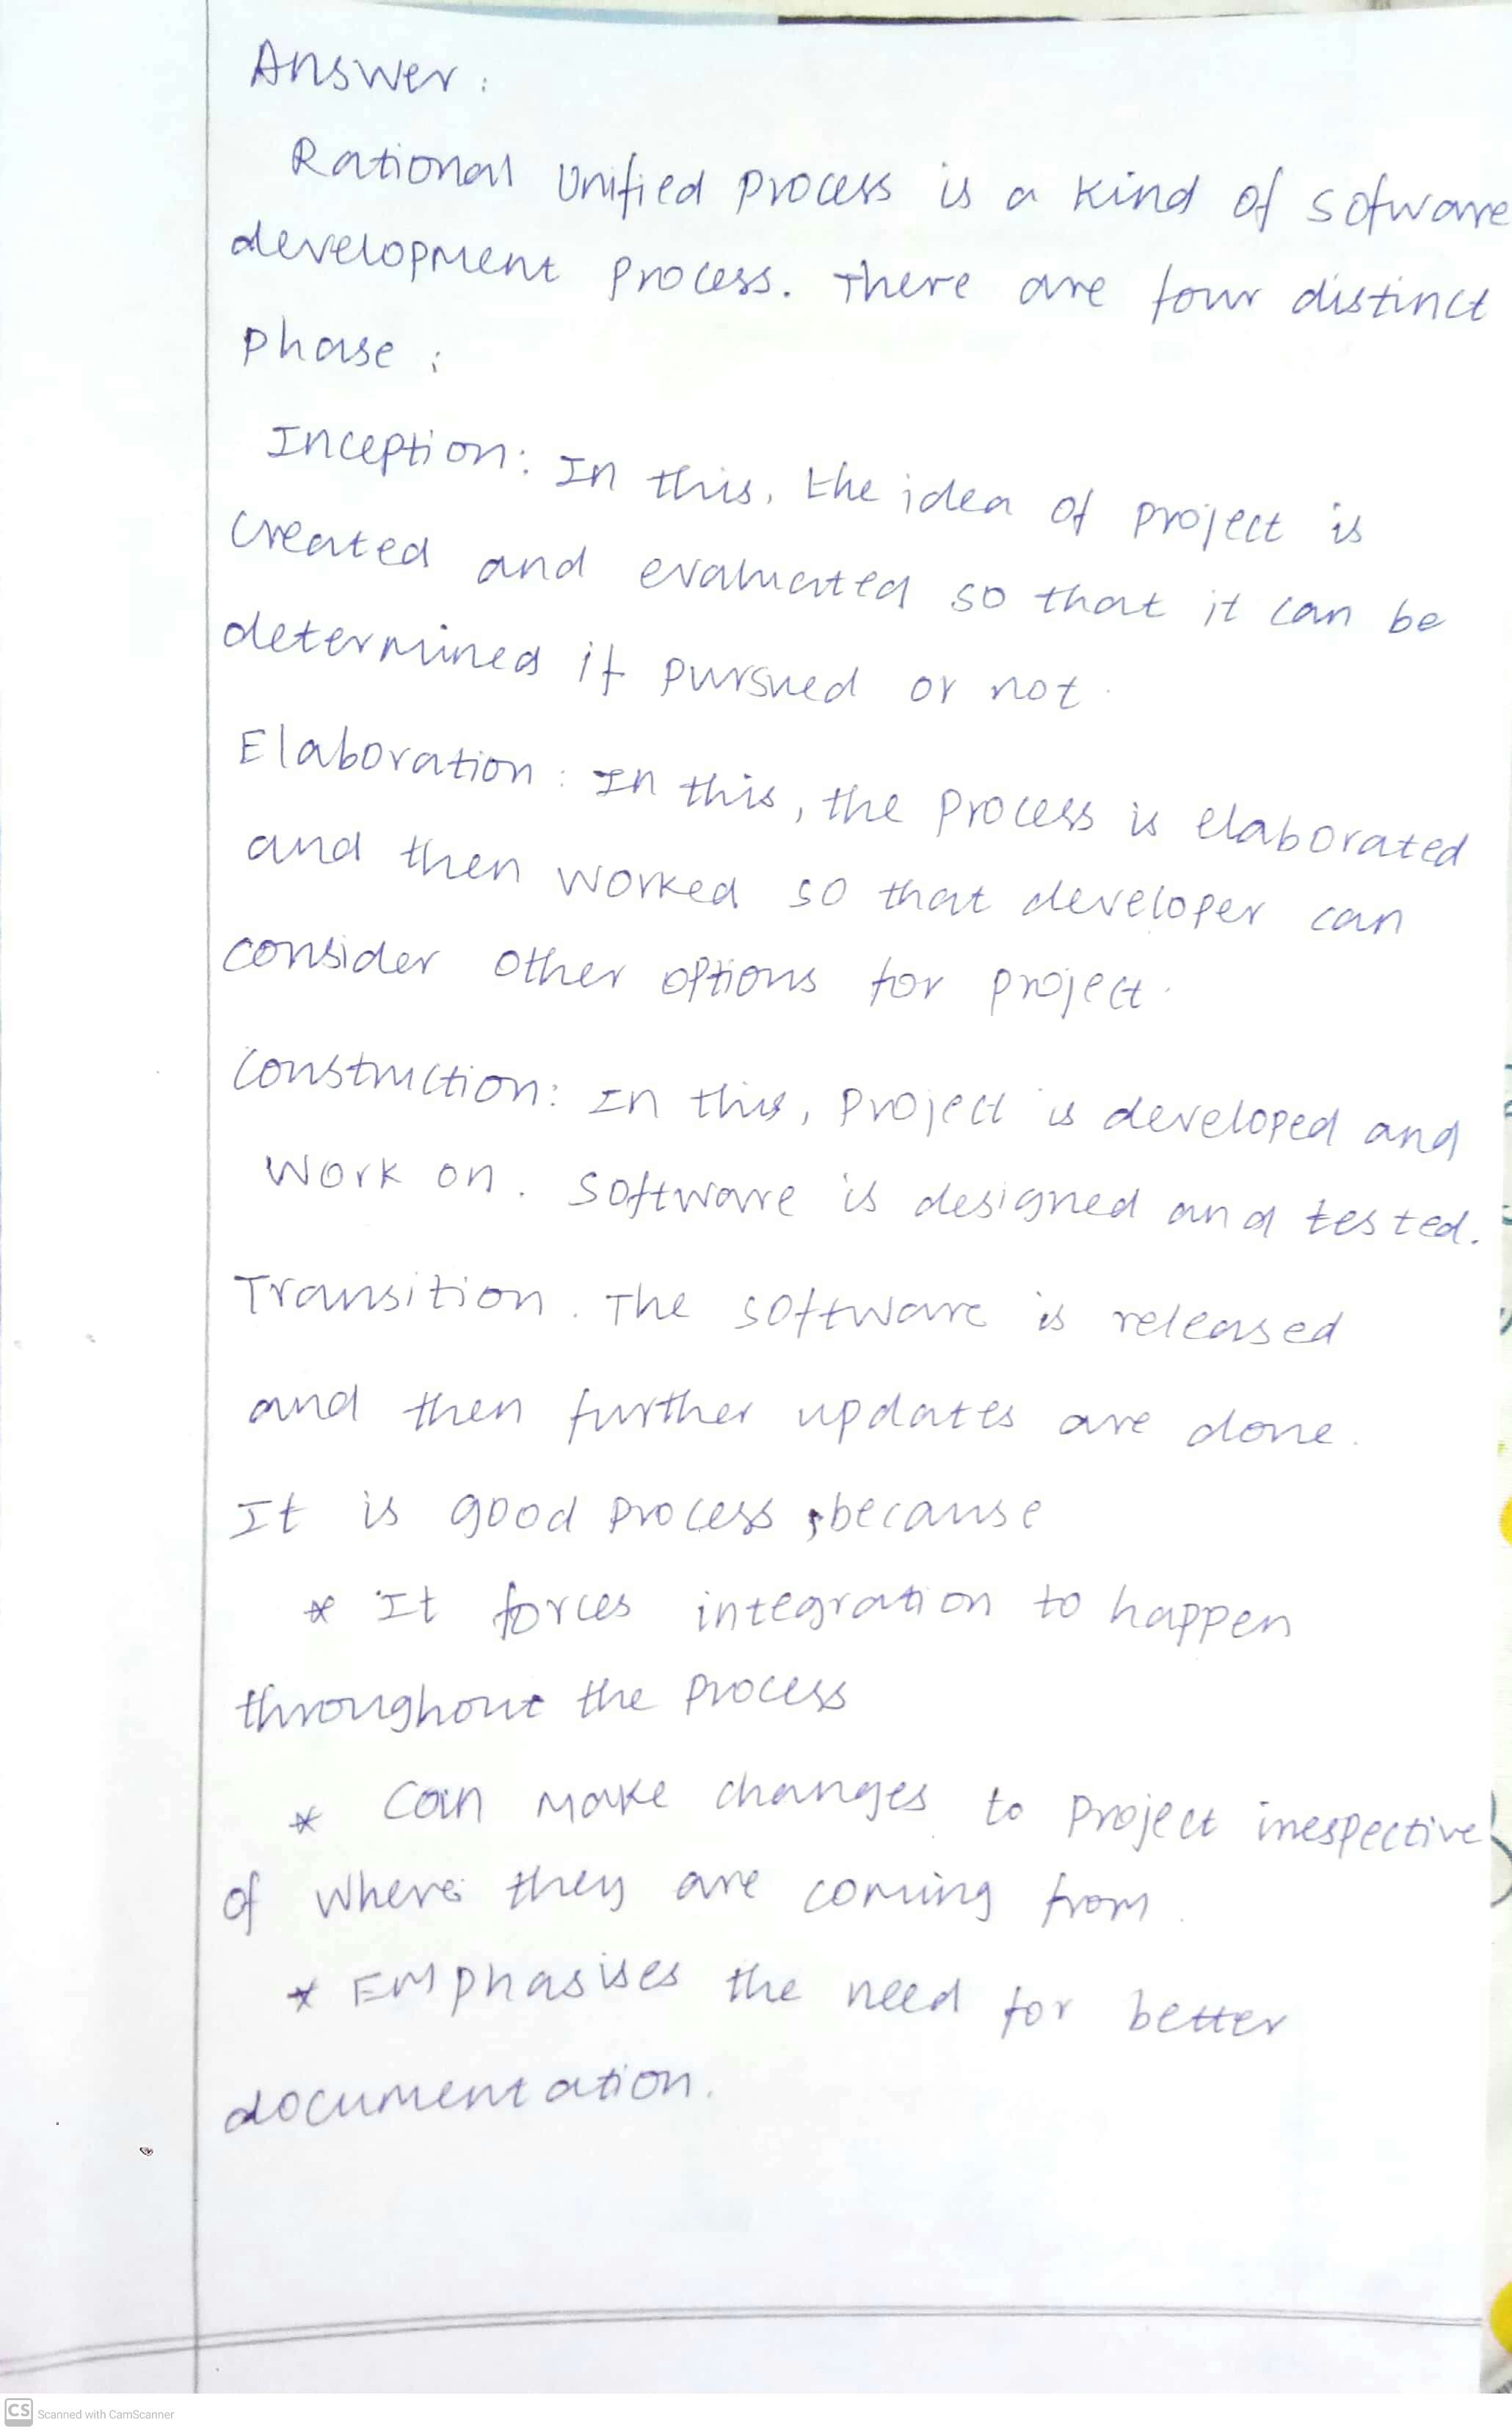 Answer :
Rational Unified Process is a kind of sofware
development process. There are four distinct
phase :
Inception: In this, the idea of project is
created and evaluated so that it can be
determined if pursued or not.
Elaboration : In this, the process is elaborated
and then worked so that developer can
consider other options for project.
Construction: In this, project is developed and
work on. Software is designed and tested.
Transition. The software is released
and then further updates are done.
It is good process, because
* It forces integration to happen
throughout the process
* Can make changes to project irrespective
of where they are coming from.
* Emphasises the need for better
documentation.
CS Scanned with CamScanner